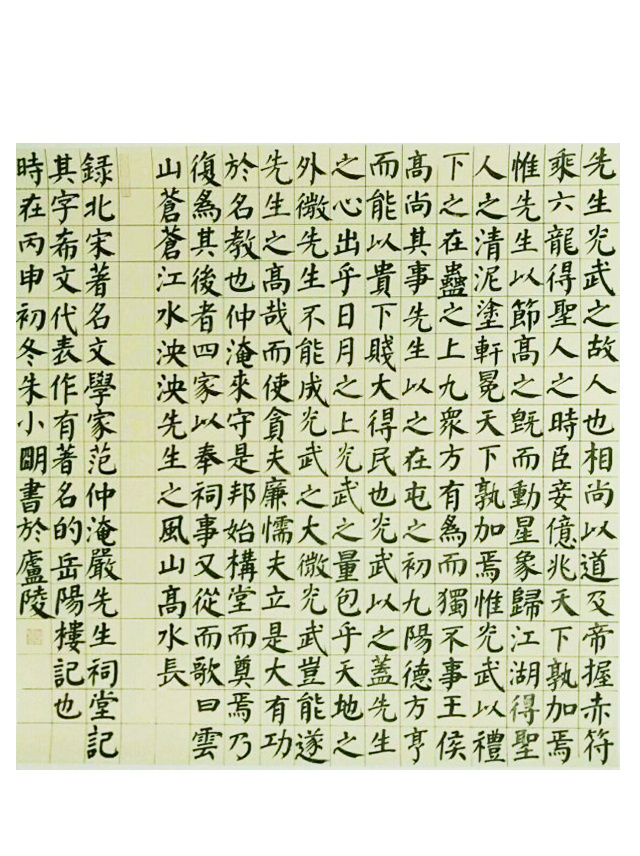 先生光武之故人也相尚以道及帝握赤符
乘六龍得聖人之時臣妾億兆天下孰加焉
惟先生以節高之既而動星象歸江湖得聖
人之清泥塗軒冕天下孰加焉惟光武以禮
下之在蠱之上九衆方有爲而獨不事王侯
高尚其事先生以之在屯之初九陽德方亨
而能以貴下賤大得民也光武以之蓋先生
之心出乎日月之上光武之量包乎天地之
外微先生不能成光武之大微光武豈能遂
先生之高哉而使貪夫廉懦夫立是大有功
於名教也仲淹來守是邦始構堂而奠焉乃
復爲其後者四家以奉祠事又從而歌曰雲
山蒼蒼江水泱泱先生之風山高水長
録北宋著名文學家范仲淹嚴先生祠堂記
其字希文代表作有著名的岳陽樓記也
時在丙申初冬朱小朙書於廬陵